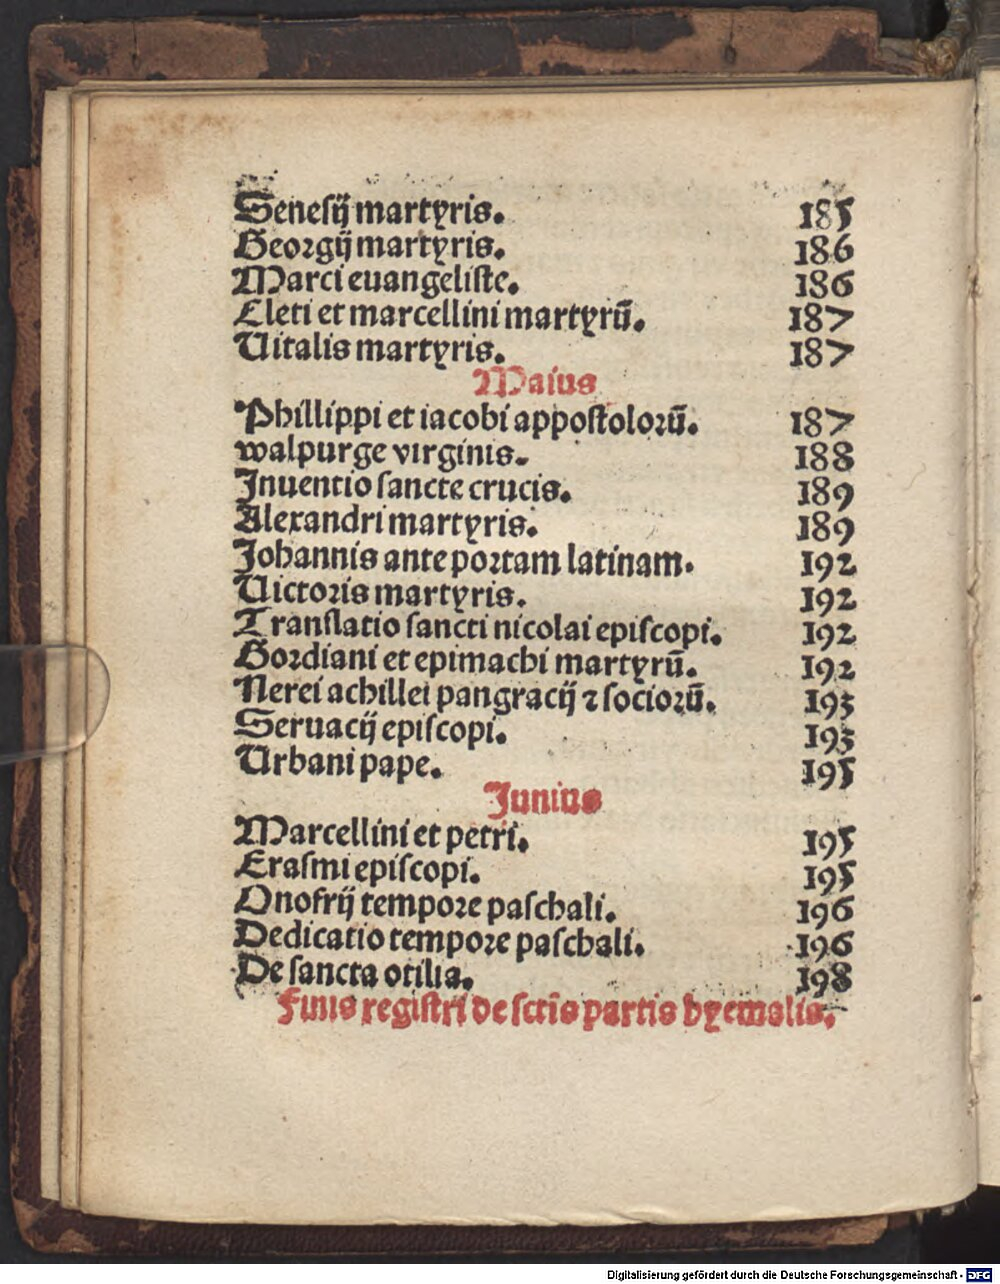 Senesij martyris. 185
Georgij martyris. 186
Marci euangeliste. 186
Cleti et marcellini martyrū. 187
Uitalis martyris. 187
Maius
Phillippi et iacobi appostolorū. 187
walpurge virginis. 188
Inuentio sancte crucis. 189
Alexandri martyris. 189
Johannis ante portam latinam. 192
Uictoris martyris. 192
Translatio sancti nicolai episcopi. 192
Gordiani et epimachi martyrū. 192
Nerei achillei pangracij ⁊ sociorū. 193
Seruacij episcopi. 193
Urbani pape. 195
Junius
Marcellini et petri. 195
Erasmi episcopi. 195
Onofrij tempore paschali. 196
Dedicatio tempore paschali. 196
De sancta otilia. 198
Finis registri de sctīs partis hyemalis.
Digitalisierung gefördert durch die Deutsche Forschungsgemeinschaft - DFG